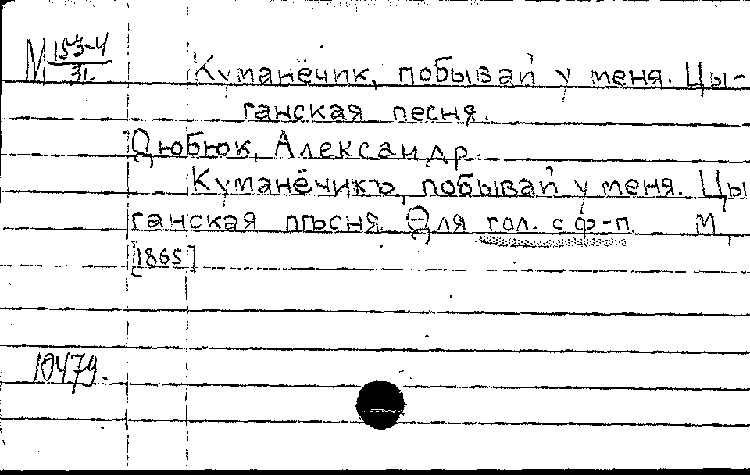 М 153-4/31.
Куманёчик, побывай у меня. Цы-
ганская песня.
Дюбюк, Александр.
Куманёчикъ, побывай у меня. Цы
ганская пѣсня. Для гол. с ф-п. М,
[1865]
10479.